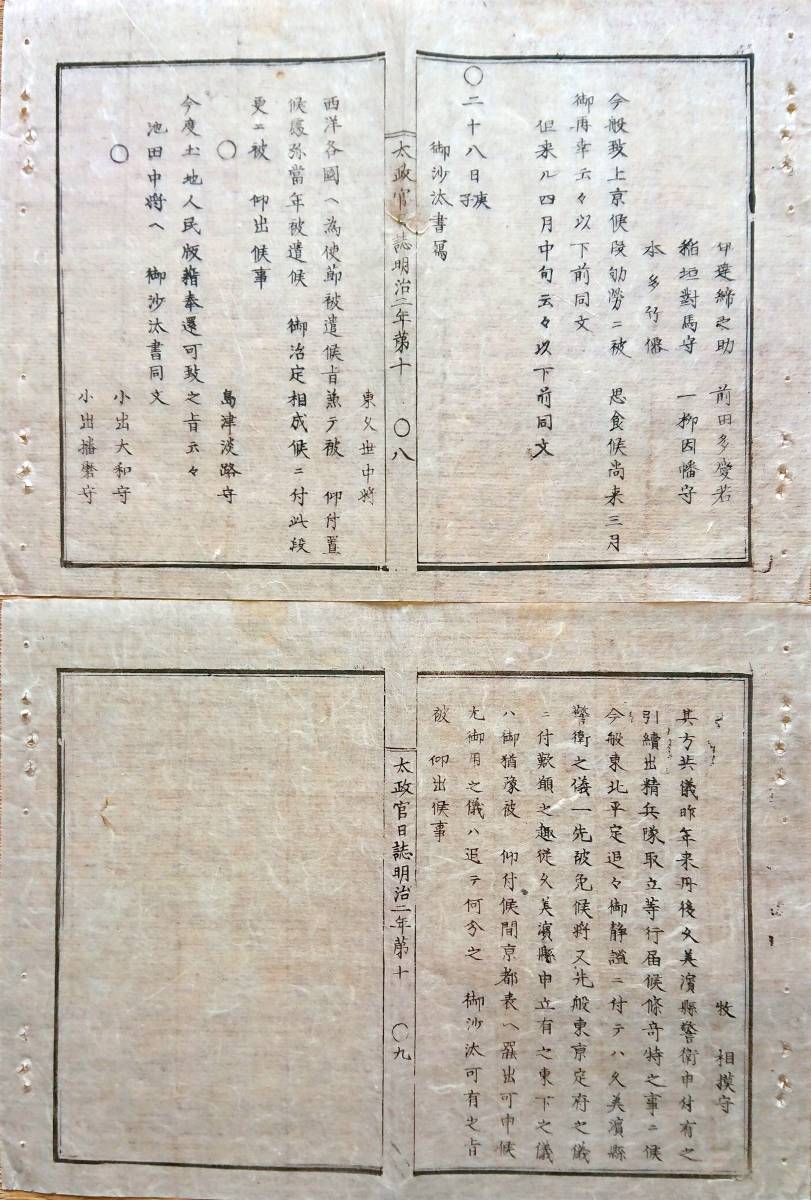 伊達締之助　前田多慶若
稲垣對馬守　一柳因幡守
本多
今般致上京候段劬勞ニ被　思食候尚来三月
御再幸云々以下前同文
但来ル四月中旬云々以下前同文
〇二十八日庚子
御沙汰書寫
太政官日誌明治二年第十　〇八
東久世中將
西洋各國ヘ為使節被遣候旨兼テ被　仰付置
候處弥當年被遣候　御治定相成候ニ付此段
更ニ被　仰出候事
〇　島津淡路守
今度土地人民版籍奉還可致之旨云々
池田中將ヘ　御沙汰書同文
〇　小出大和守
小出播磨守
牧　相摸守
其方共儀昨年来丹後久美濱縣警衛申付有之
引續出精兵隊取立等行届候條奇特之事ニ候
今般東北平定追々御静謐ニ付テハ久美濱縣
警衛之儀一先被免候將又先般東京定府之儀
ニ付歎願之趣従久美濱縣申立有之東下之儀
ハ御猶豫被　仰付候間京都表ヘ罷出可申候
尤御用之儀ハ追テ何分之　御沙汰可有之旨
被　仰出候事
太政官日誌明治二年第十　〇九